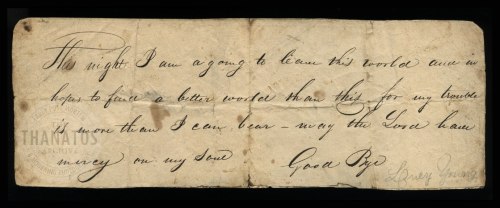 This night I am agoing to leave this world and in
hopes to find a better world than this for my trouble
is more than I can bear - may the Lord have
mercy on my Soul Good Bye
THANATOS
ARCHIVE
Young